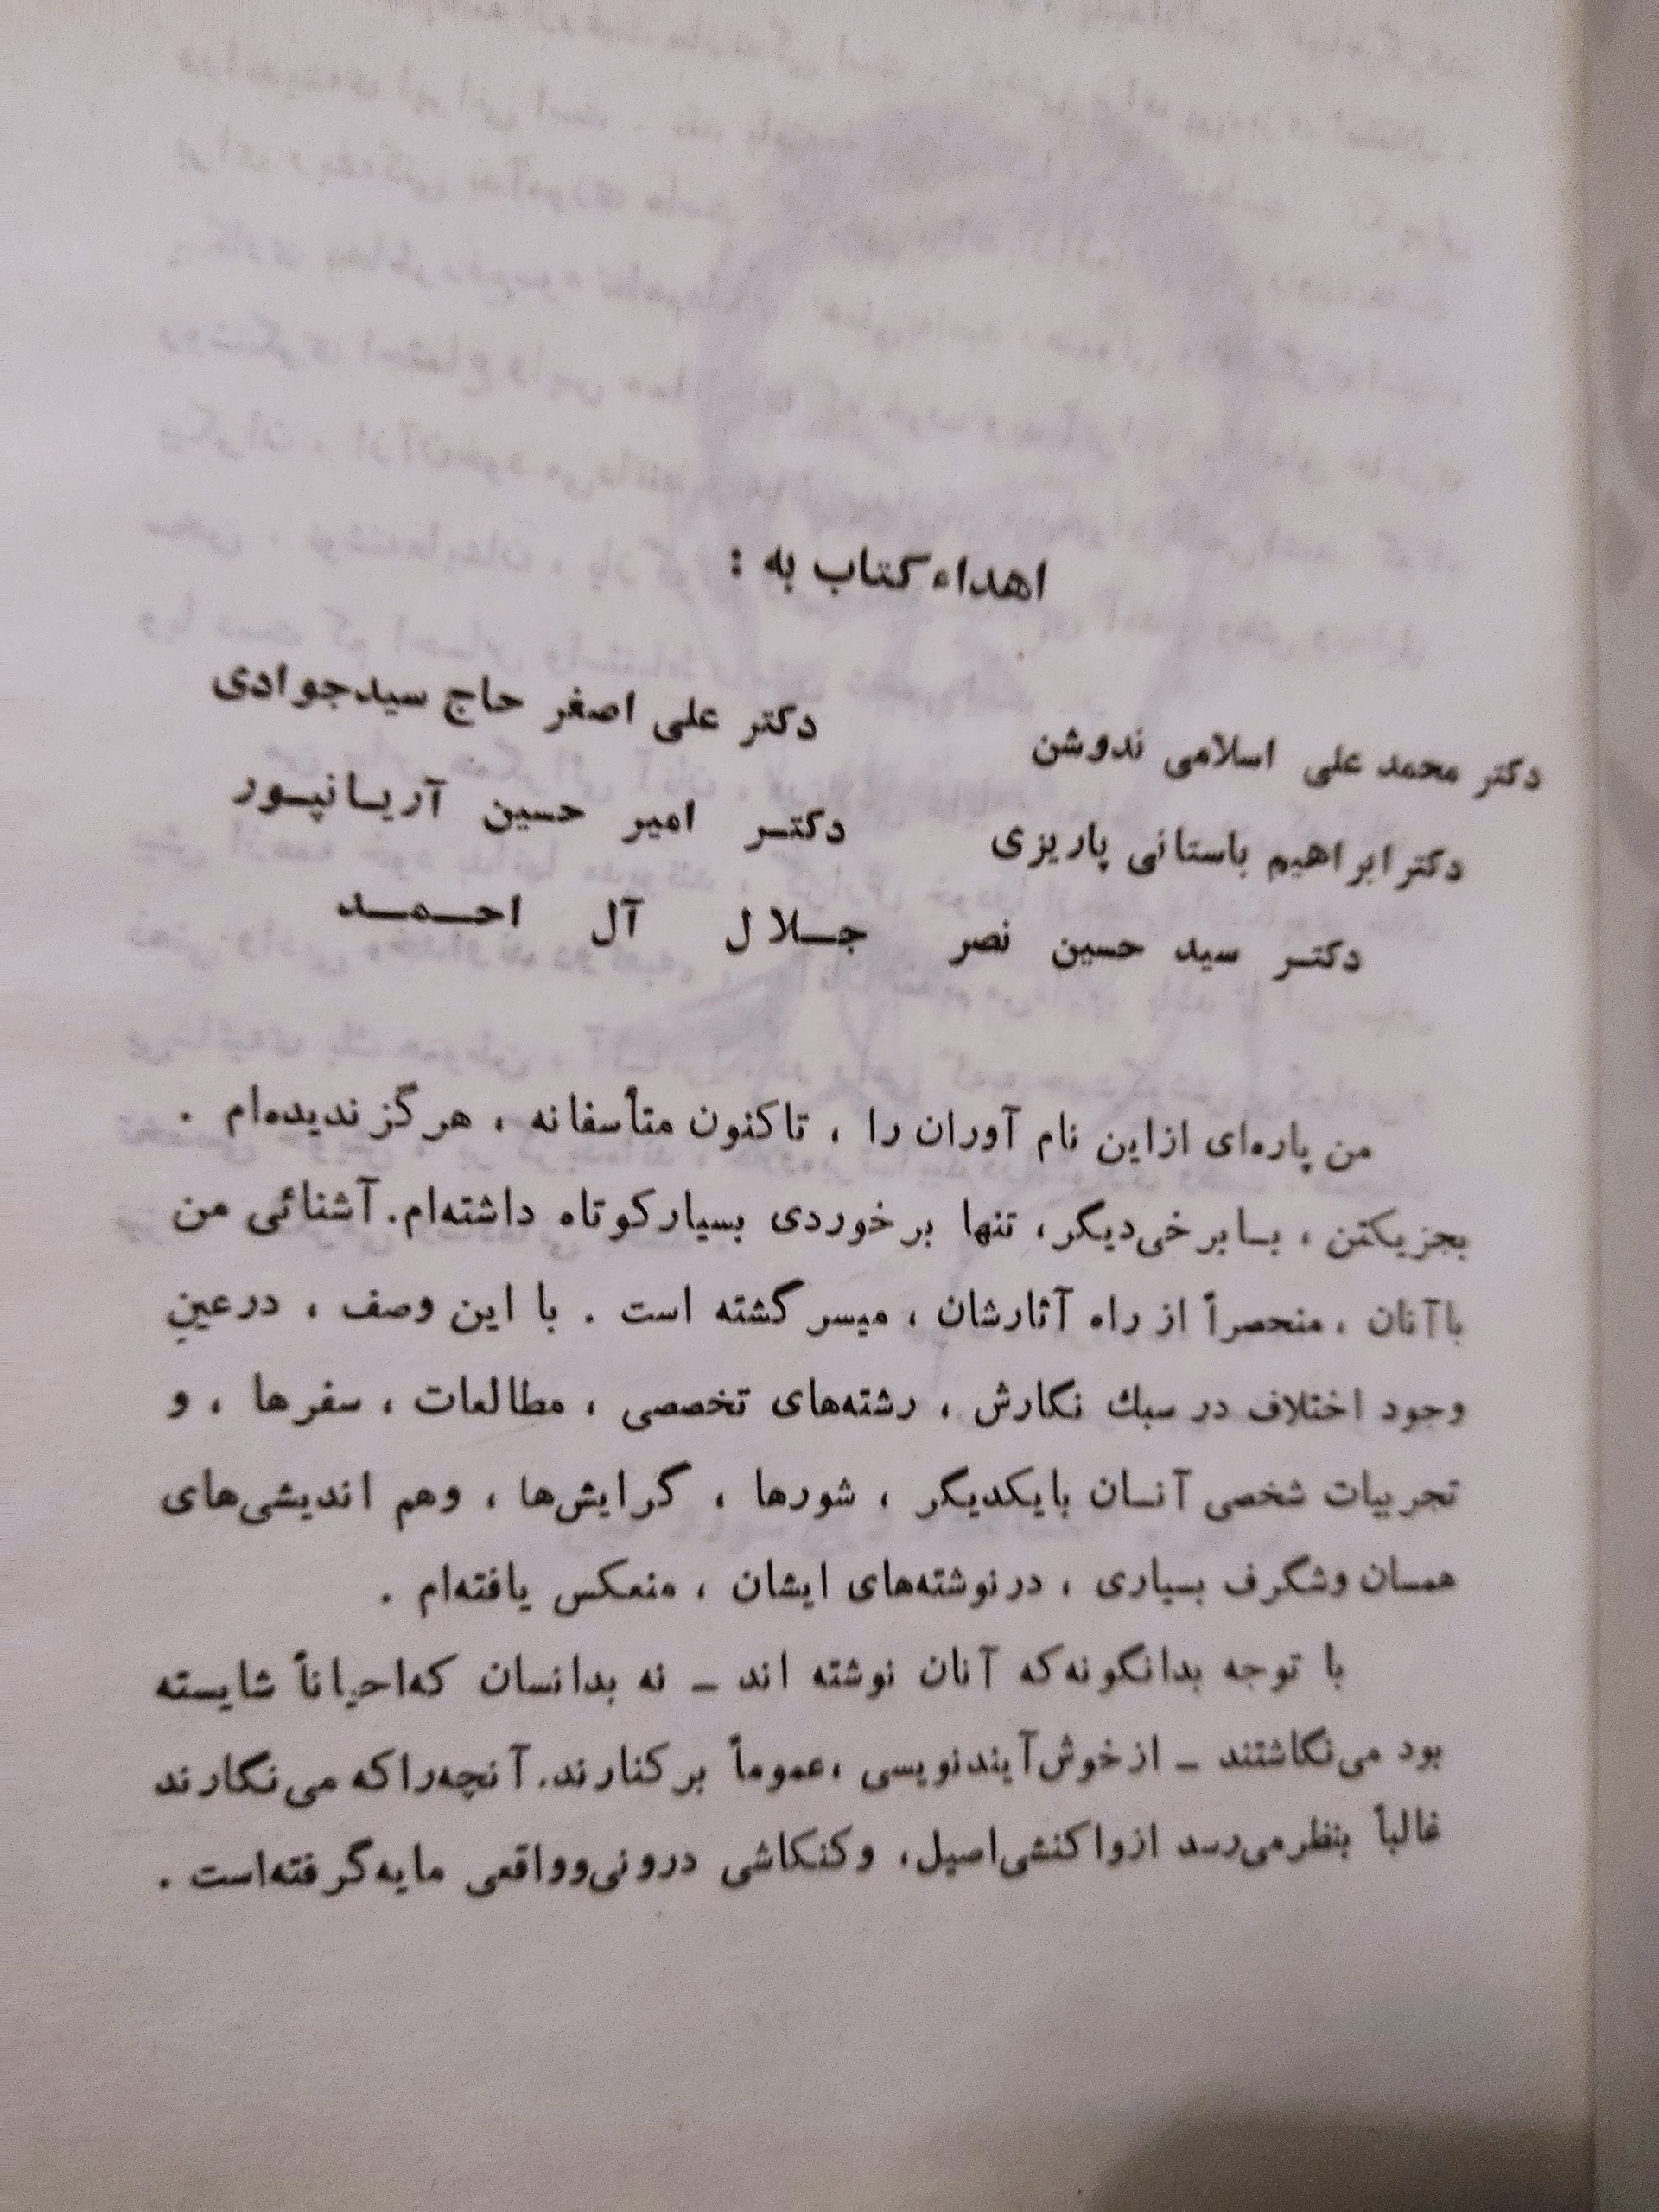 اهداء کتاب به :
دکتر محمد علی اسلامی ندوشن دکتر علی اصغر حاج سیدجوادی
دکتر ابراهیم باستانی پاریزی دکتـر امیر حسین آریـانپـور
دکتـر سید حسین نصر جـلال آل احـمـد
من پاره‌ای ازاین نام آوران را ، تاکنون متأسفانه ، هرگز ندیده‌ام .
بجزیکتن ، بـابرخی‌دیگر، تنها برخوردی بسیارکوتاه داشته‌ام. آشنائی من
باآنان ، منحصراً از راه آثارشان ، میسر گشته است . با این وصف ، درعینِ
وجود اختلاف در سبك نگارش ، رشته‌های تخصصی ، مطالعات ، سفرها ، و
تجربیات شخصی آنـان بایکدیگر ، شورها ، گرایش‌ها ، وهم اندیشی‌های
همسان وشگرف بسیاری ، درنوشته‌های ایشان ، منعکس یافته‌ام .
با توجه بدانگونه‌که آنان نوشته اند ــ نه بدانسان که‌احیاناً شایسته
بود می‌نگاشتند ــ ازخوش‌آیندنویسی ،عموماً برکنارند. آنچه‌راکه می‌نگارند
غالباً بنظرمی‌رسد ازواکنشی‌اصیل، وکنکاشی درونی‌وواقعی مایه‌گرفته‌است .